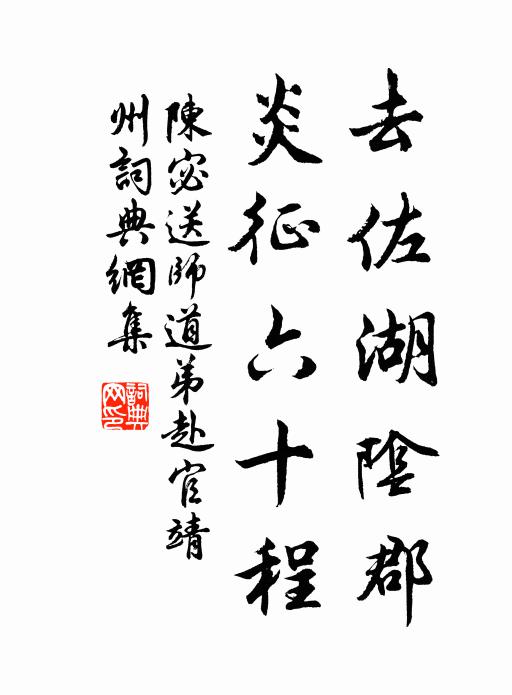 去佐湖陰郡
炎征六十程
陳宓送師道弟赴官靖
州詞典網集
詞典網印